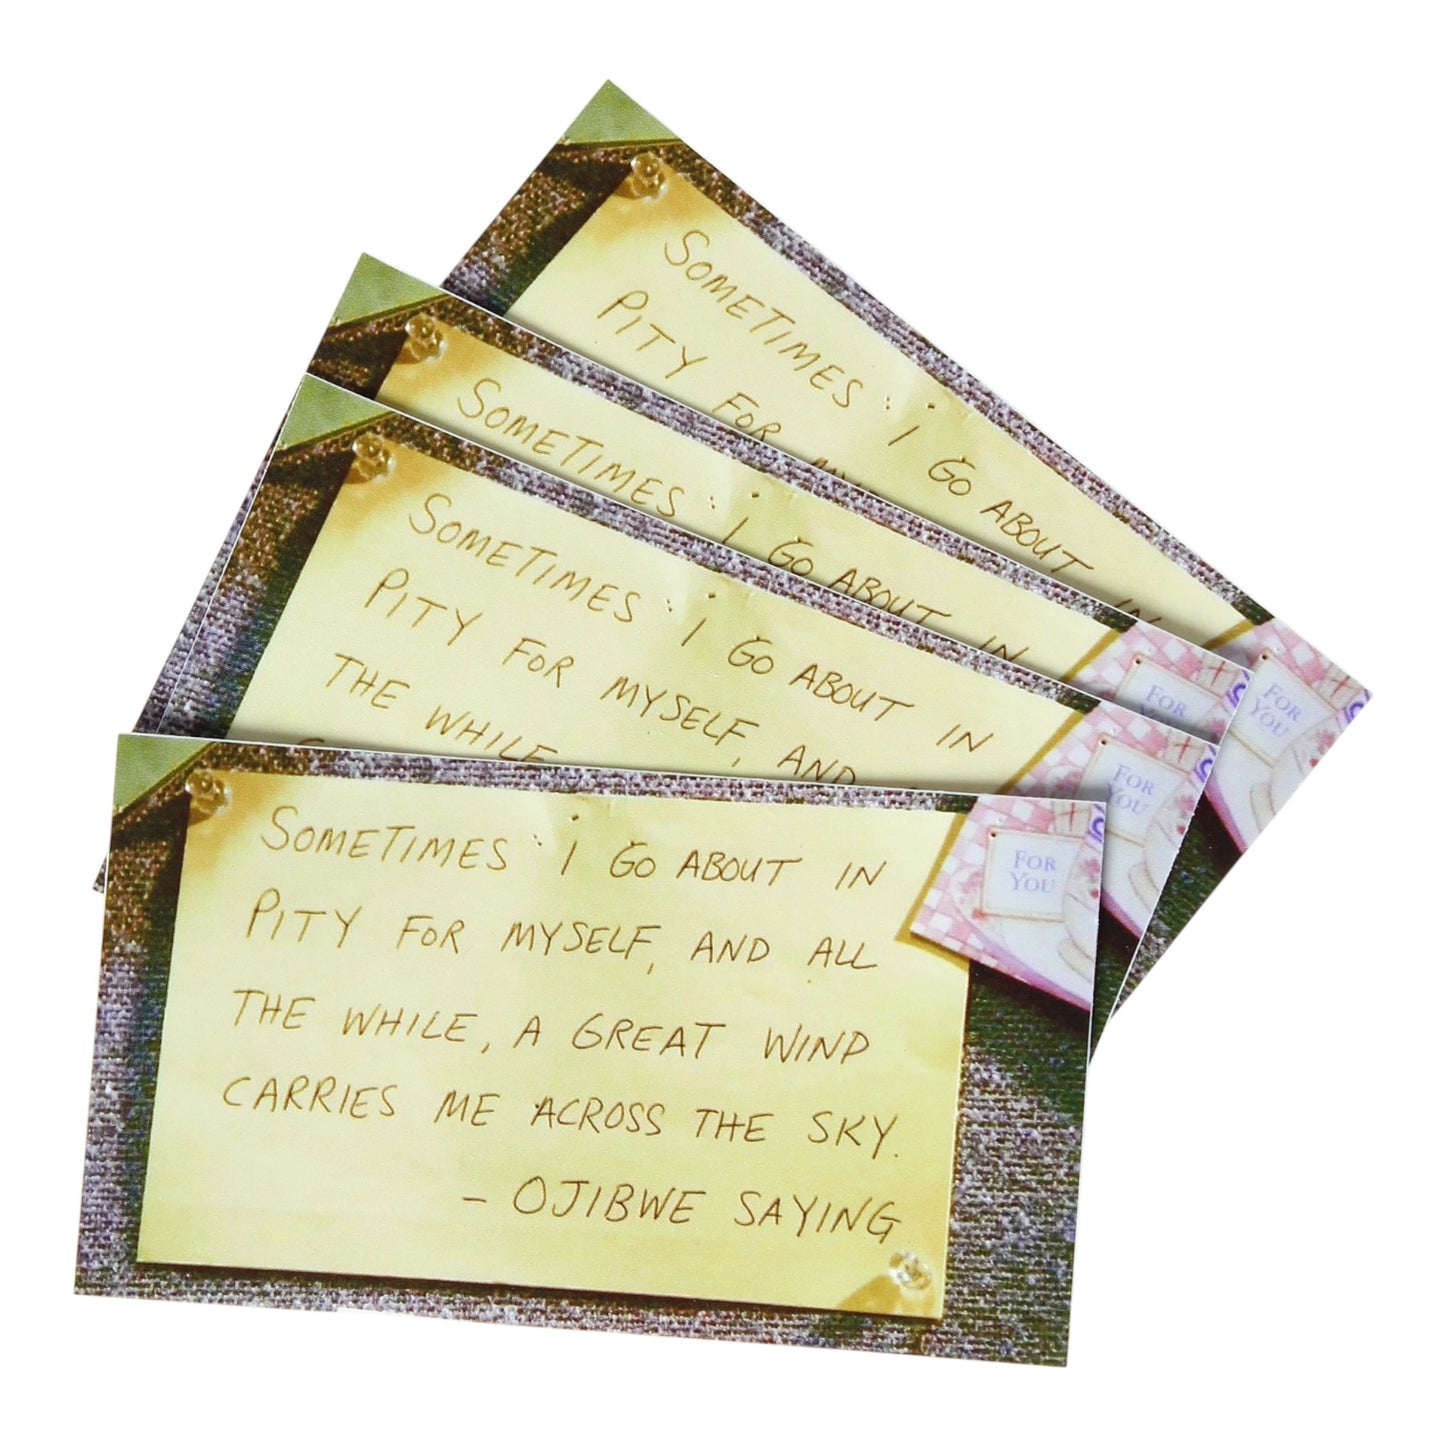 SOMETIMES I GO ABOUT IN
PITY FOR M
SOMETIMES I GO ABOUT IN
FOR
YOU
FOR
SOMETIMES I GO ABOUT IN
PITY FOR MYSELF, AND
THE WHILE
FOR
YOU
SOMETIMES I GO ABOUT IN
PITY FOR MYSELF, AND ALL
THE WHILE, A GREAT WIND
CARRIES ME ACROSS THE SKY.
- OJIBWE SAYING
FOR
YOU